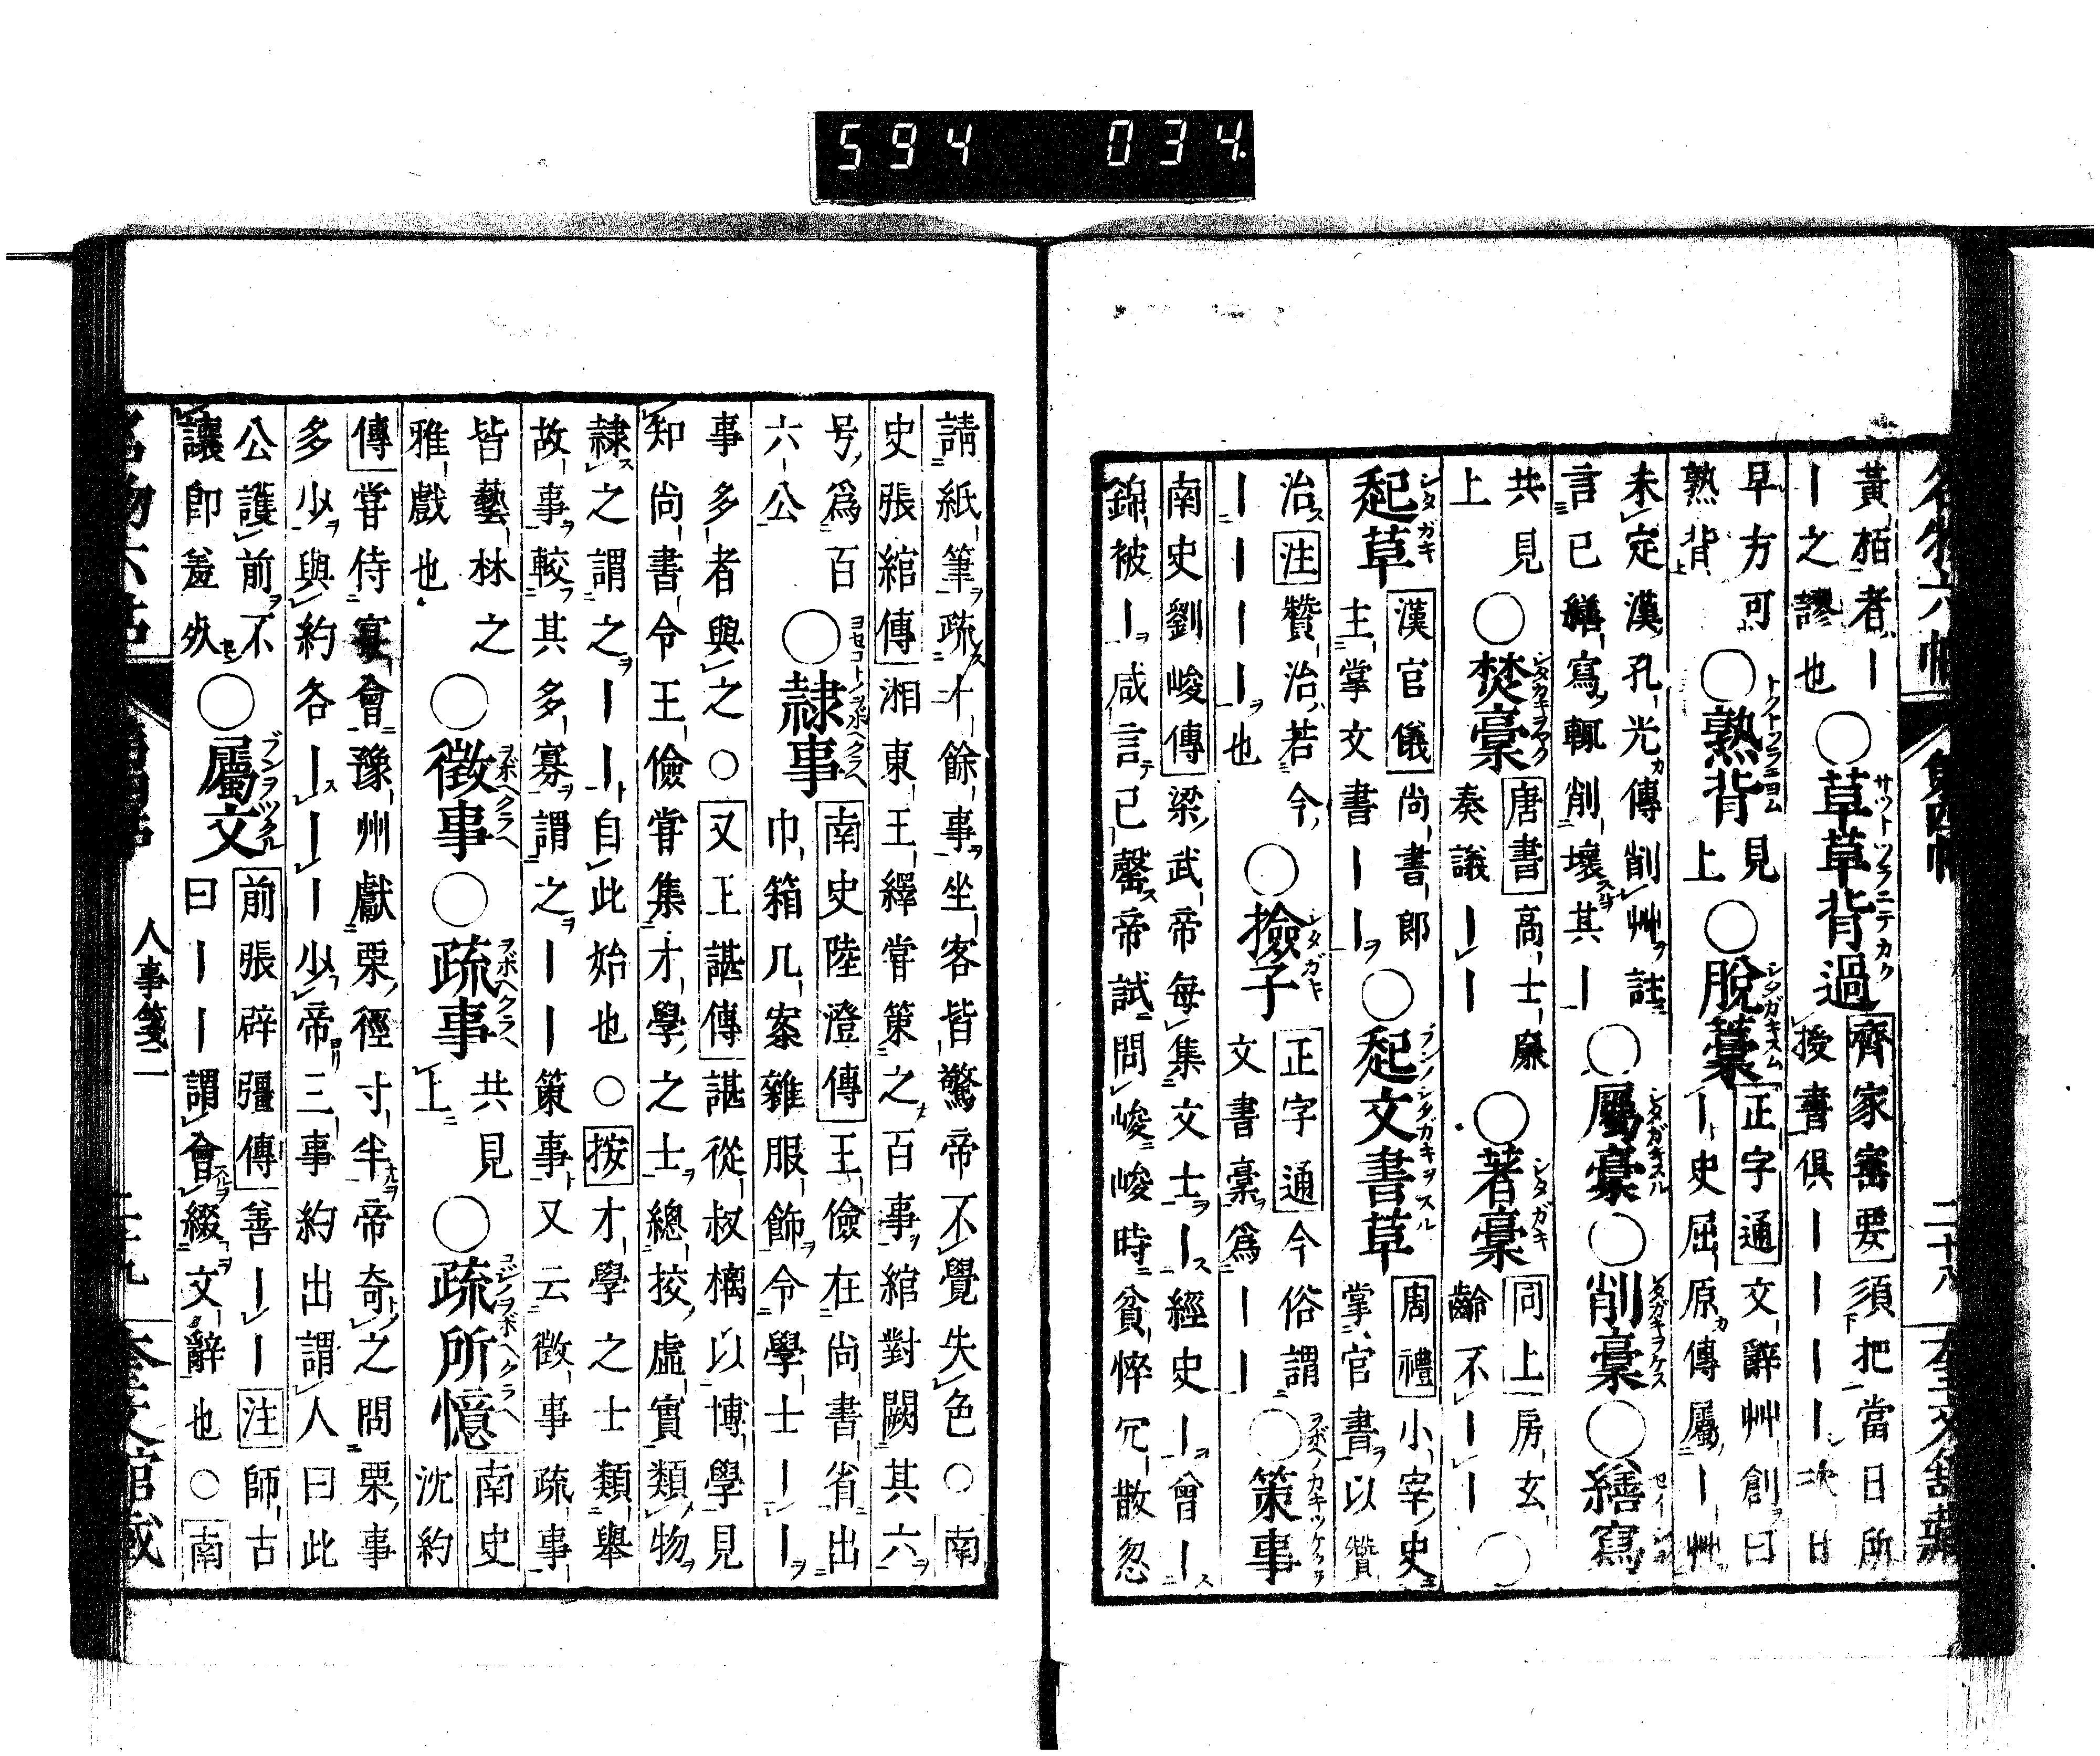 594 034
名物六帖 第四帖 二十八 奎文舘藏
黃栢者｜
｜之謬也
○草草背過
齊家寳要須把當日所
授書俱｜｜｜｜次日
早方可
熟背
○熟背
見
上
○脫藁
正字通文辭艸創曰
｜史屈原傳屬｜艸
未定漢孔光傳削艸註
言已繕寫輒削壞其｜
○屬藁○削藁○繕寫
共見
上
○焚藁
唐書高士廉
奏議｜｜
○著藁
同上房玄
齡不｜｜
○
起草
漢官儀尚書郎
主掌文書｜｜
○起文書草
周禮小宰史
掌官書以贊
治注贊治若今
｜｜｜｜也
○撿子
正字通今俗謂
文書藁爲｜｜
○策事
南史劉峻傳梁武帝每集文士｜經史｜曾｜
錦被｜咸言已罄帝試問峻峻時貧悴冗散忽
請紙筆疏十餘事坐客皆驚帝不覺失色○南
史張綰傳湘東王繹嘗策之百事綰對闕其六
号爲百
六公
○隷事
南史陸澄傳王儉在尚書省出
巾箱几案雜服飾令學士｜｜
事多者與之○又王諶傳諶從叔摛以博學見
知尚書令王儉嘗集才學之士總挍虛實類物
隷之謂之｜｜自此始也○按才學之士類舉
故事較其多寡謂之｜｜策事又云徵事疏事
皆藝林之
雅戲也
○徵事○疏事
共見
上
○疏所憶
南史
沈約
傳嘗侍宴會豫州獻栗徑寸半帝奇之問栗事
多少與約各｜｜｜少帝三事約出謂人曰此
公護前不
讓卽羞死
○屬文
前張辟彊傳善｜｜注師古
曰｜｜謂會綴文辭也○南
名物六帖 第四帖 人事箋二 二十九 奎文舘藏